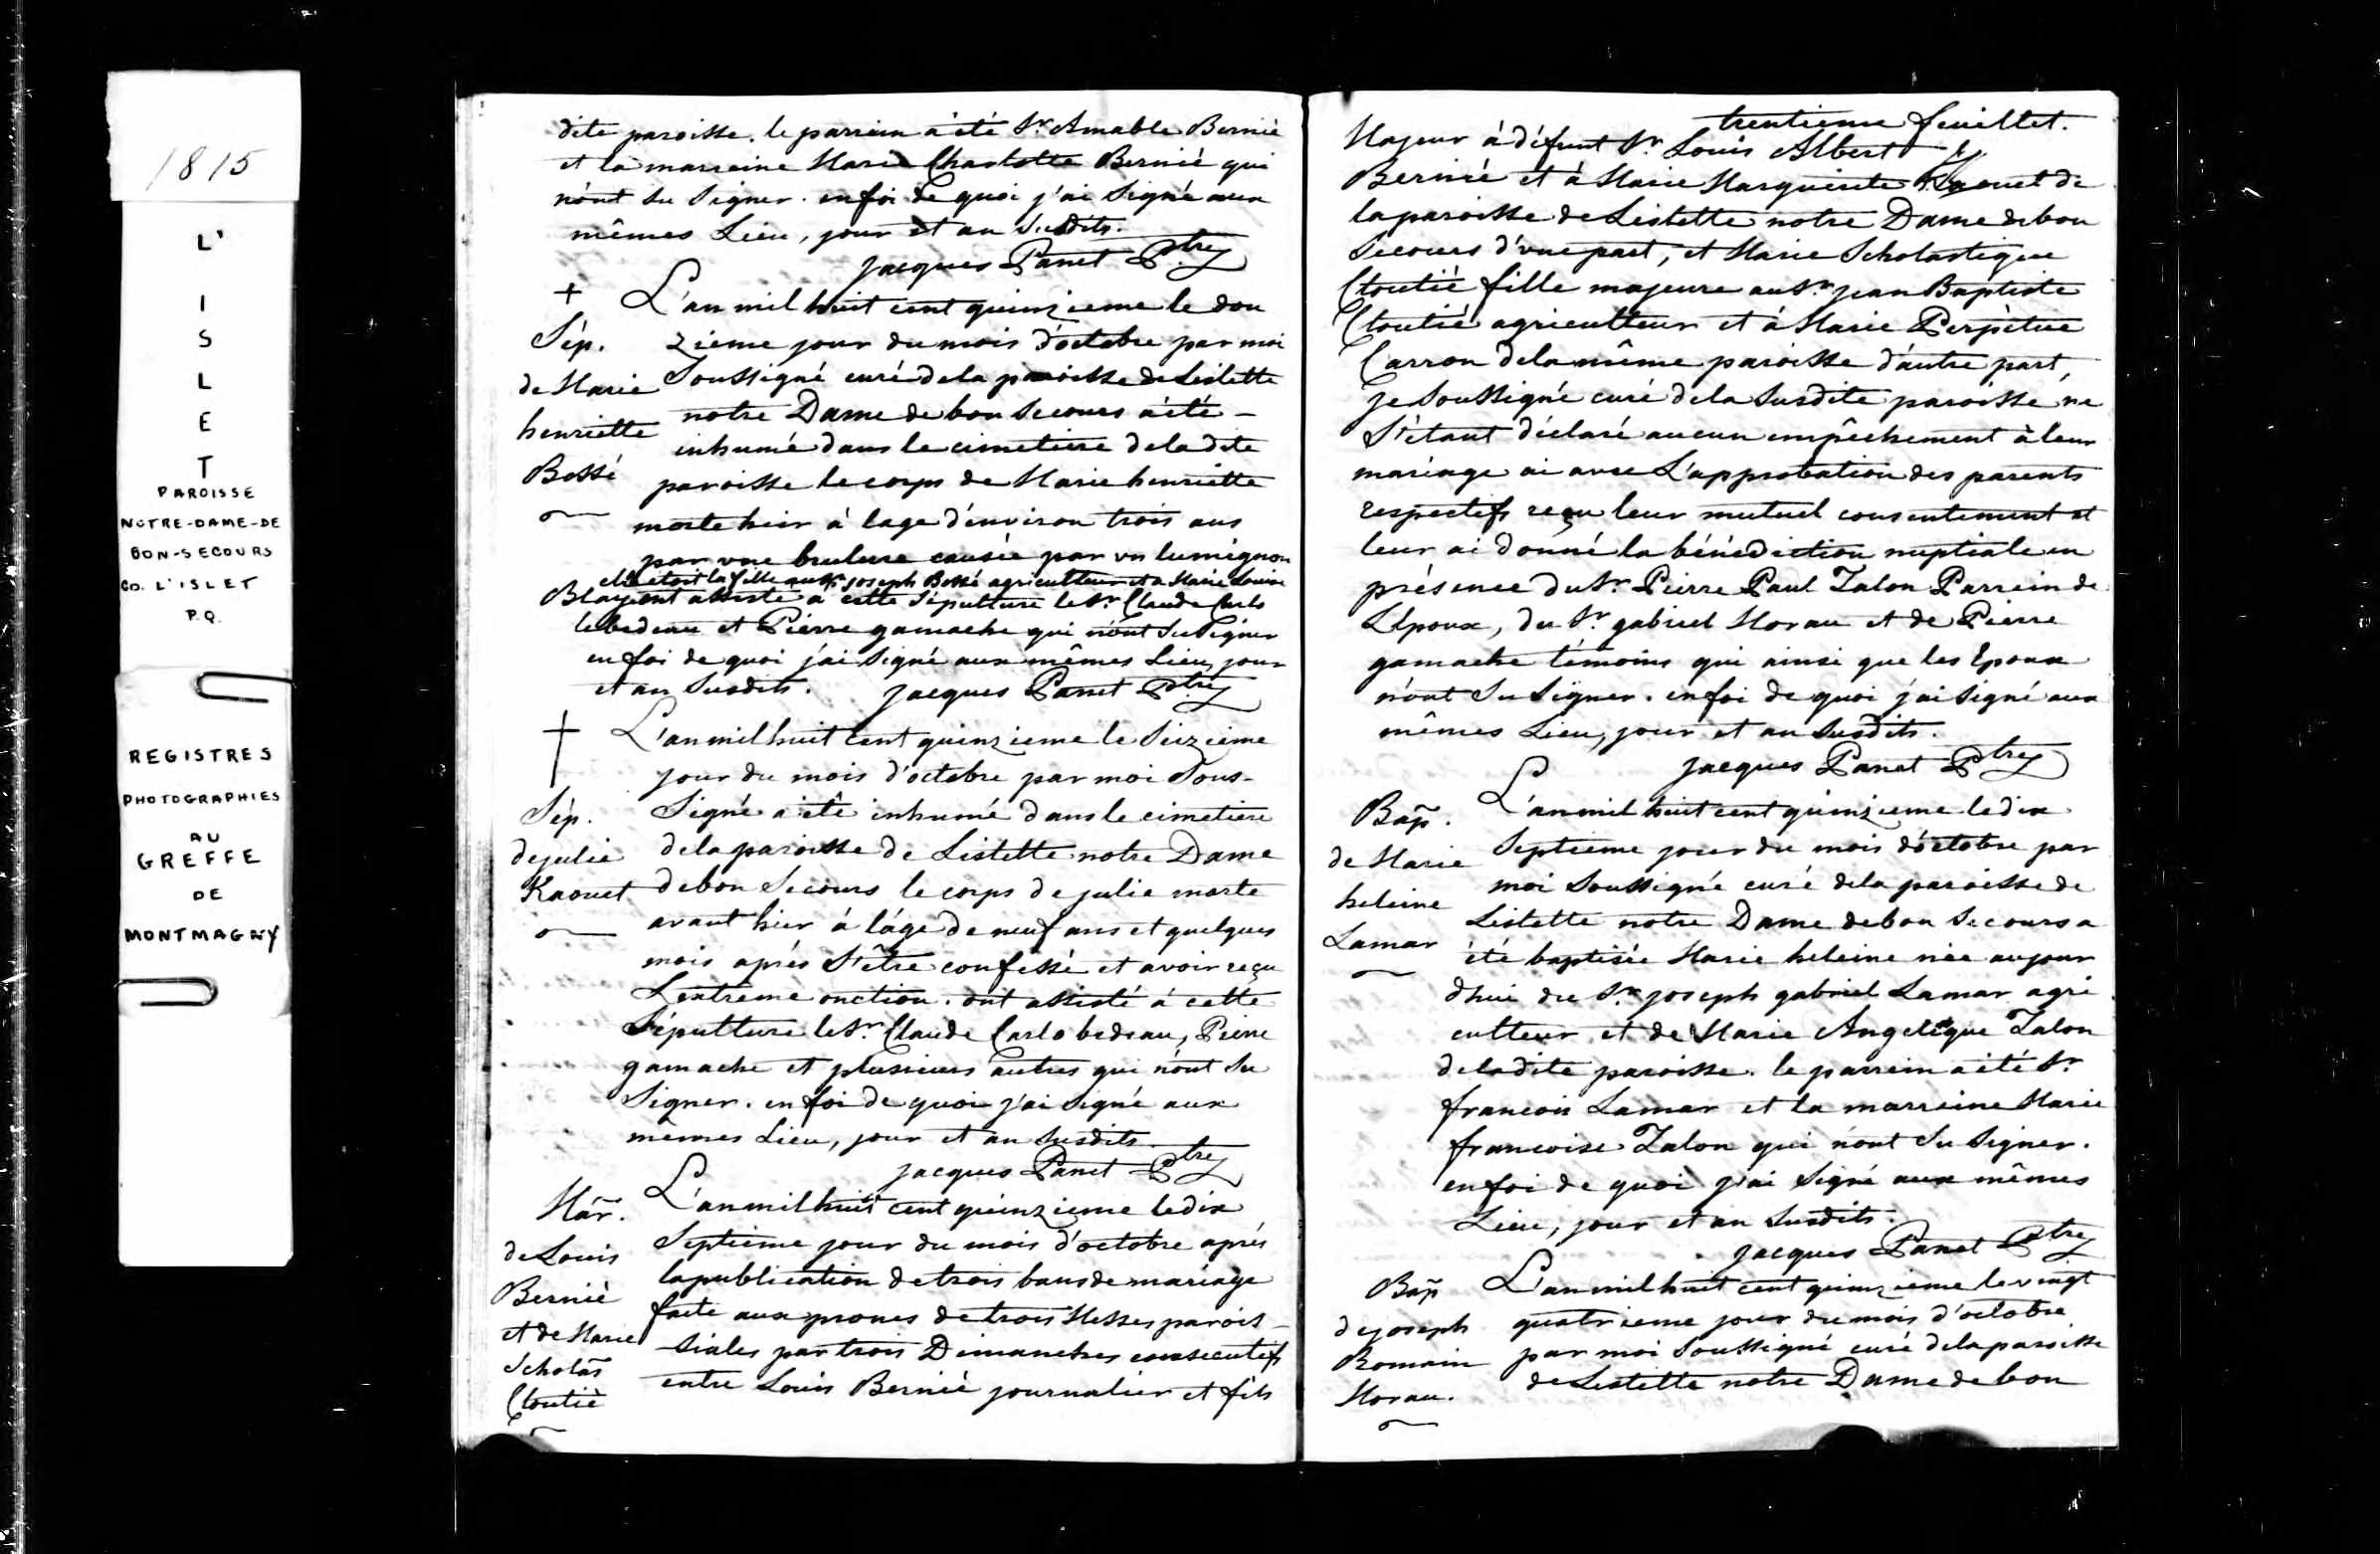 1815
L'
I
S
L
E
T
PAROISSE
NOTRE-DAME-DE
BON-SECOURS
CO. L'ISLET
P.Q.
REGISTRES
PHOTOGRAPHIES
AU
GREFFE
DE
MONTMAGNY
dite paroisse. le parrein a été Sr. Amable Bernié
et la marreine Marie Charlotte Bernié qui
n'ont su signer. en foi de quoi j'ai signé aux
mêmes Lieu, jour et an susdits.
jacques Panet Ptre
+
Sép.
de Marie
henriette
Bossé
L'an mil huit cent quinzieme le dou
zieme jour du mois d'octobre par moi
Soussigné curé de la paroisse de Lislette
notre Dame de bon Secours a été -
inhumé dans le cimetiere de la dite
paroisse le corps de Marie henriette
morte hier à lage d'environ trois ans
par une brulure causée par un lumignon
elle étoit la fille au Sr. joseph Bossé agriculteur et a Marie Louise
Blay ont assisté à cette Sépulture le Sr. Claude Carlo
le bedeau et Pierre gamache qui n'ont su Signer
en foi de quoi j'ai signé aux mêmes Lieu, jour
et an susdits. jacques Panet Ptre
†
Sép.
de julie
Kaouet
L'an mil huit cent quinzieme le Seizieme
jour du mois d'octobre par moi Sous-
Signé a été inhumé dans le cimetiere
de la paroisse de Lislette notre Dame
de bon Secours le corps de julie morte
avant hier à l'áge de neuf ans et quelques
mois aprés S'être confessé et avoir reçu
L'extreme onction. ont assisté à cette
Sépulture le Sr. Claude Carlo bedeau, Pierre
gamache et plusieurs autres qui n'ont su
Signer. en foi de quoi j'ai signé aux
mêmes Lieu, jour et an susdits.
jacques Panet Ptre
Mar.
de Louis
Bernié
et de Marie
Scholas
Cloutié
L'an mil huit cent quinzieme le dix
Septieme jour du mois d'octobre aprés
la publication de trois bans de mariage
faite aux prones de trois Messes parois-
siales par trois Dimanches consecutifs
entre Louis Bernié journalier et fils
trentieme feuillet.
Majeur à défunt Sr. Louis Albert
Bernié et à Marie Marguerite Kaouet de
la paroisse de Lislette notre Dame de bon
Secours d'une part, et Marie Scholastique
Cloutié fille majeure au Sr. jean Baptiste
Cloutié agriculteur et á Marie Perpétue
Carron de la même paroisse d'autre part,
je Soussigné curé de la Susdite paroisse ne
S'étant déclaré aucun empêchement à leur
mariage ai avec L'approbation des parents
respectifs reçu leur mutuel consentement et
leur ai donné la bénédiction nuptiale en
présence du Sr. Pierre Paul Talon Parrein de
L'Epoux, du Sr. gabriel Morau et de Pierre
gamache témoins qui ainsi que les Epoux
n'ont su signer. en foi de quoi j'ai signé aux
mêmes Lieu, jour et an susdits.
jacques Panet Ptre
Bap̃.
de Marie
heleine
Lamar
L'an mil huit cent quinzieme le dix
Septieme jour du mois d'octobre par
moi Soussigné curé de la paroisse de
Lislette notre Dame de bon Secours a
été baptisée Marie heleine née aujour
d'hui du Sr. joseph gabriel Lamar agri
culteur et de Marie Angelique Talon
de la dite paroisse. le parrein a été Sr.
francois Lamar et la marreine Marie
francoise Talon qui n'ont su signer.
en foi de quoi j'ai signé aux mêmes
Lieu, jour et an susdits.
jacques Panet Ptre
Bap̃
de joseph
Romain
Morau.
L'an mil huit cent quinzieme le vingt
quatrieme jour du mois d'octobre
par moi Soussigné curé de la paroisse
de Lislette notre Dame de bon